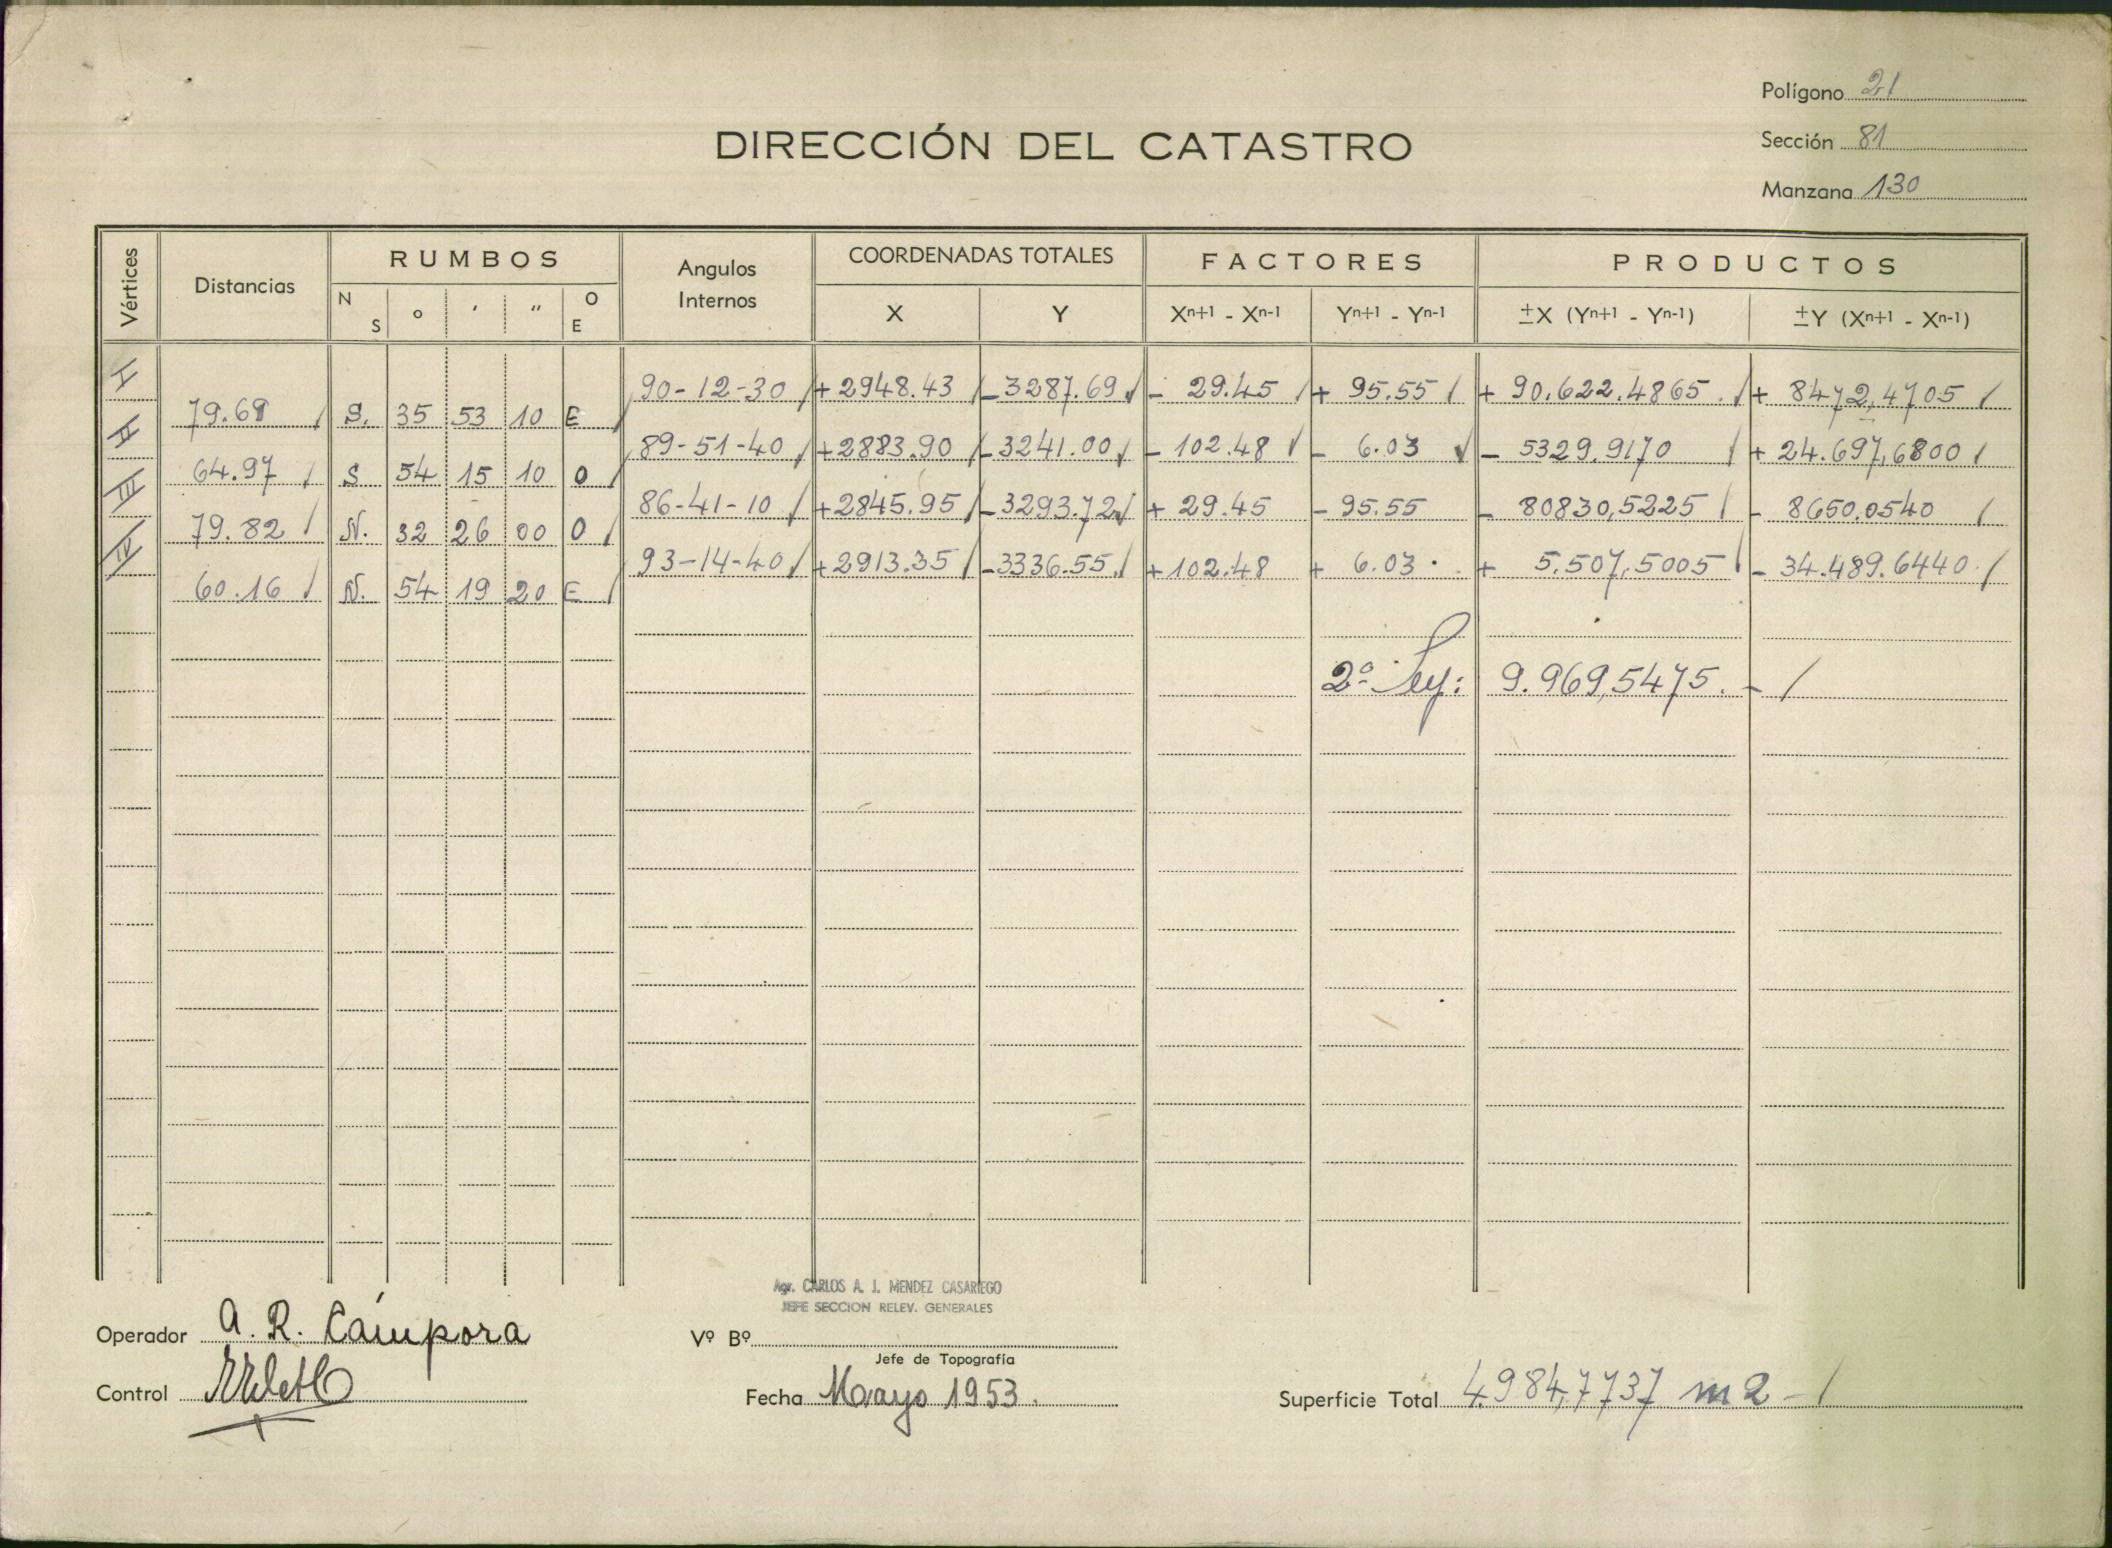 Polígono 21
DIRECCIÓN DEL CATASTRO
Sección 81
Manzana 130
Vértices Distancias RUMBOS Angulos Internos COORDENADAS TOTALES FACTORES PRODUCTOS
N S ° ′ ″ O E X Y Xn+1 - Xn-1 Yn+1 - Yn-1 ±X (Yn+1 - Yn-1) ±Y (Xn+1 - Xn-1)
I 90-12-30 / +2948.43 / -3287.69 / - 29.45 / + 95.55 / + 90.622.4865 / + 8472,4705 /
79.69 / S. 35 53 10 E /
II 89-51-40 / +2883.90 / -3241.00 / - 102.48 / - 6.03 / - 5329.9170 / + 24.697,6800 /
64.97 / S 54 15 10 O /
III 86-41-10 / +2845.95 / -3293.72 / + 29.45 - 95.55 - 80830,5225 / - 8650.0540 /
79.82 / N. 32 26 00 O /
IV 93-14-40 / +2913.35 / -3336.55 / +102.48 + 6.03 . + 5.507,5005 / - 34.489.6440 /
60.16 / N. 54 19 20 E /
2º Sup: 9.969,5475. - /
Agr. CARLOS A. J. MENDEZ CASARIEGO
JEFE SECCION RELEV. GENERALES
Operador A. R. Cámpora
Vº Bº
Jefe de Topografía
Control
Fecha Mayo 1953.
Superficie Total 4.984,7737 m2 - /